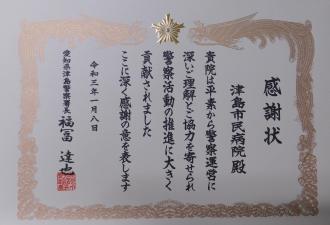 感謝状
津島市民病院殿
貴院は平素から警察運営に
深いご理解とご協力を寄せられ
警察活動の推進に大きく
貢献されました
ここに深く感謝の意を表します
令和三年一月八日
愛知県津島警察署長 福冨達也